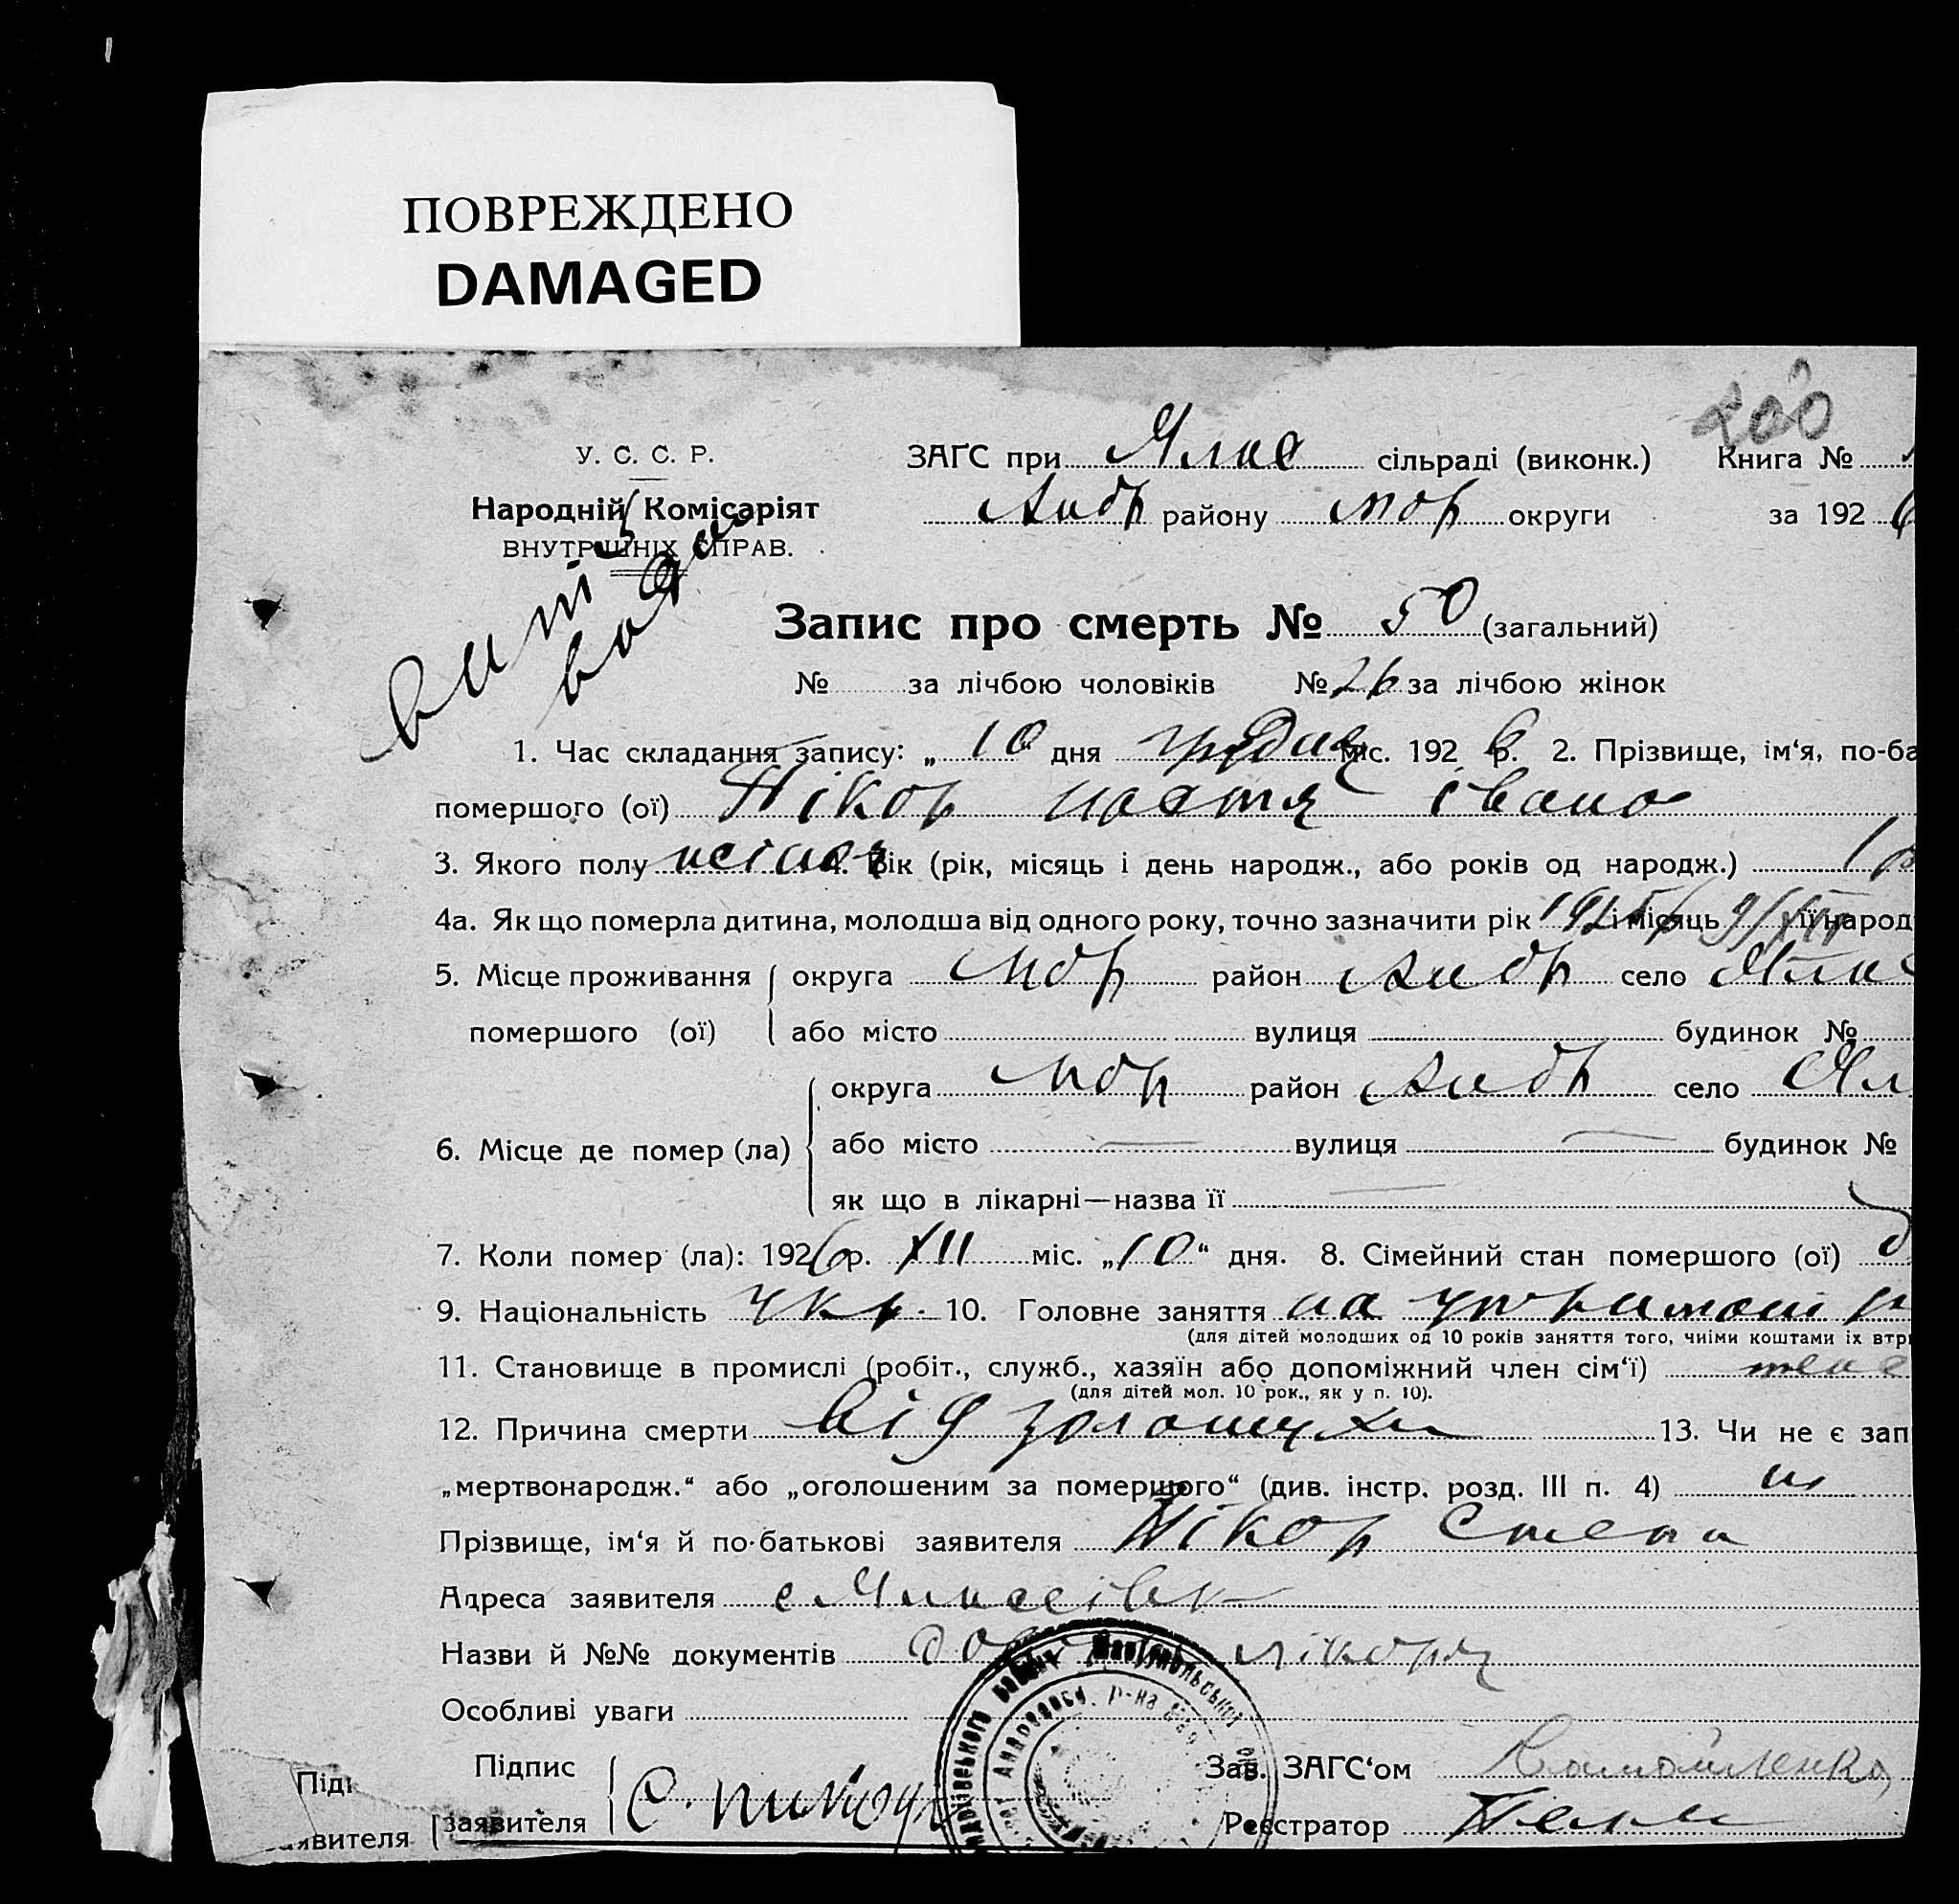 ПОВРЕЖДЕНО
DAMAGED
200
У. С. С. Р.
ЗАГС при сільраді (виконк.) Книга №
Народній Комісаріят
Андр району мор округи за 192 6
ВНУТРІШНІХ СПРАВ.
Запис про смерть № 50 (загальний)
№ за лічбою чоловіків № 26 за лічбою жінок
1. Час складання запису: „ 10 дня грудня міс. 192 6 р. 2. Прізвище, ім‘я, по-ба
помершого (ої) Нікор настя івано
3. Якого полу 4. Вік (рік, місяць і день народж., або років од народж.) 1
4а. Як що померла дитина, молодша від одного року, точно зазначити рік і місяць її народ
5. Місце проживання округа мор район Андр село
помершого (ої) або місто вулиця будинок №
округа мор район Андр село Ял
6. Місце де помер (ла) або місто — вулиця — будинок №
як що в лікарні—назва її —
7. Коли помер (ла): 1926 р. XII міс. „10“ дня. 8. Сімейний стан помершого (ої)
9. Національність укр. 10. Головне заняття на
(для дітей молодших од 10 років заняття того, чиїми коштами їх втри
11. Становище в промислі (робіт., служб., хазяїн або допоміжний член сім‘ї)
(для дітей мол. 10 рок., як у п. 10).
12. Причина смерти від золотухи 13. Чи не є зап
„мертвонародж.“ або „оголошеним за помершого“ (див. інстр. розд. III п. 4) ні
Прізвище, ім‘я й по-батькові заявителя Нікор Степа
Адреса заявителя с
Назви й №№ документів лікоря
Особливі уваги
Підпис Зав. ЗАГС‘ом
Підп
заявителя С. Реєстратор
явителя